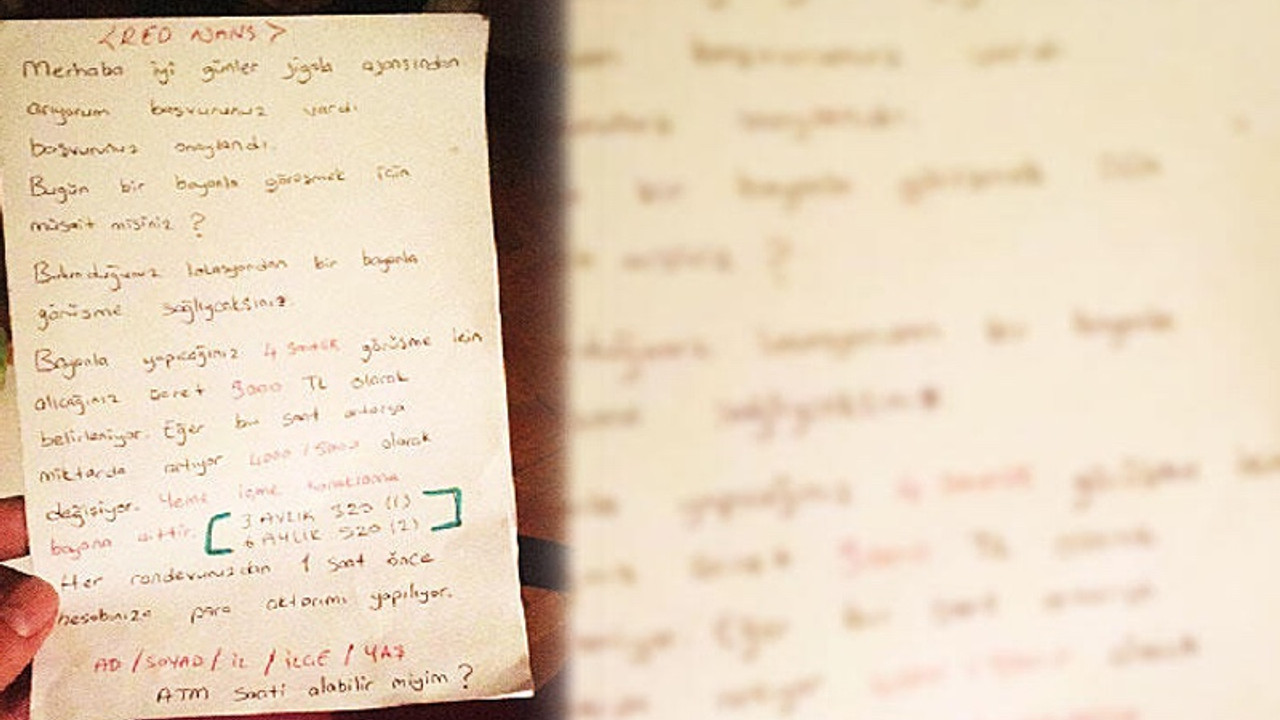 <RED AJANS>
Merhaba iyi günler jigolo ajansından
arıyorum başvurunuz vardı
başvurunuz onaylandı.
Bugün bir bayanla görüşmek için
müsait misiniz ?
Bulunduğunuz lokasyondan bir bayanla
görüşme sağlıyorsunuz.
Bayanla yapıcağınız 4 saatlik görüşme için
alıcağınız ücret 3000 TL olarak
belirleniyor. Eğer bu saat artarsa
miktarda artıyor 4000 / 5000 olarak
değişiyor. Yeme içme konaklama
bayana aittir. [ 3 AYLIK 320 (1)
6 AYLIK 520 (2) ]
Her randevunuzdan 1 saat önce
hesabınıza para aktarımı yapılıyor.
AD / SOYAD / İL / İLÇE / YAŞ
ATM saati alabilir miyim ?